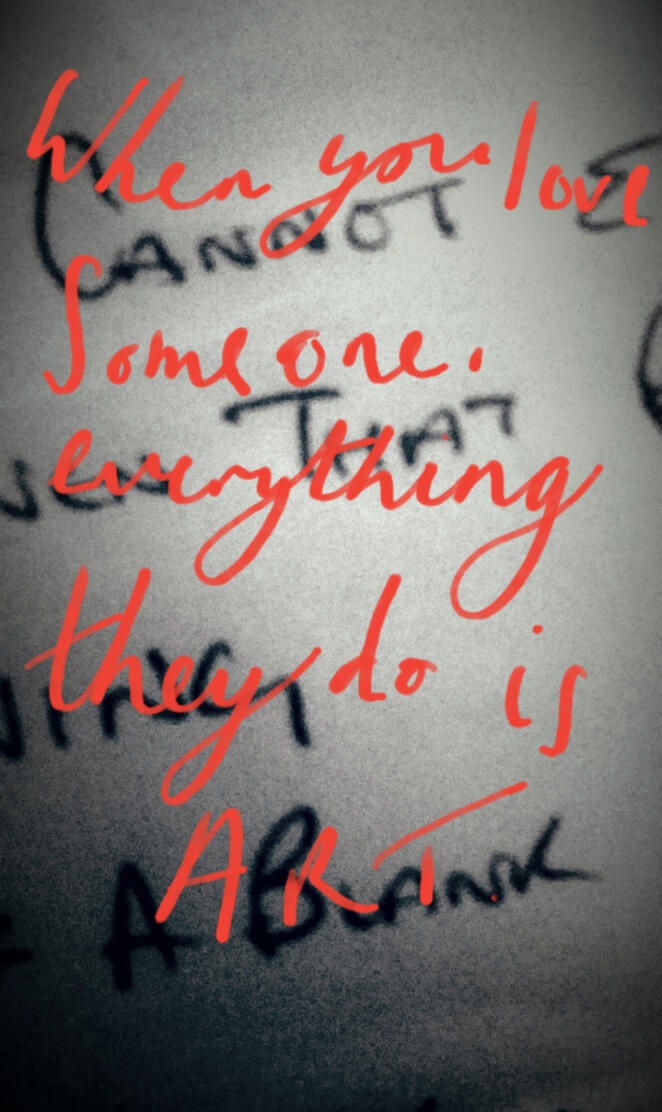 When you love
CANNOT
Someone.
THAT
everything
they do is
ART.
A BLANK